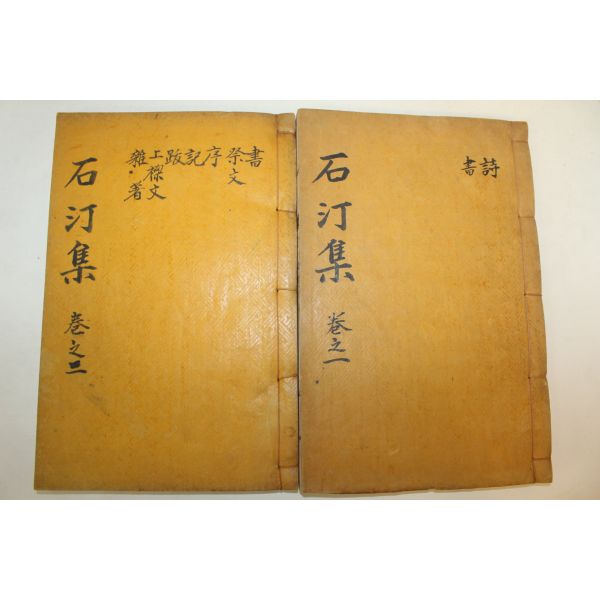 詩
書
石汀集 卷之一
書
祭文
序
記
跋
上樑文
雜著
石汀集 卷之三